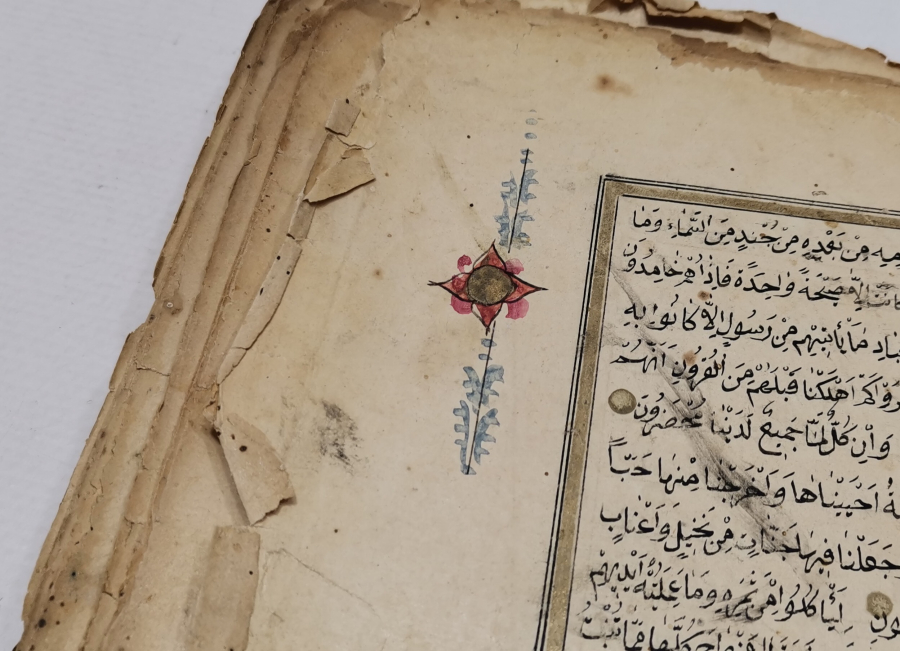 مِنْ بَعْدِهِ مِنْ جُنْدٍ مِنَ السَّمَاءِ وَمَا
كَانَتْ اِلَّا صَيْحَةً وَاحِدَةً فَاِذَا هُمْ خَامِدُونَ
مَا يَأْتِيهِمْ مِنْ رَسُولٍ اِلَّا كَانُوا بِهِ
كَمْ اَهْلَكْنَا قَبْلَهُمْ مِنَ الْقُرُونِ اَنَّهُمْ
وَاِنْ كُلٌّ لَمَّا جَمِيعٌ لَدَيْنَا مُحْضَرُونَ
اَحْيَيْنَاهَا وَاَخْرَجْنَا مِنْهَا حَبًّا
جَعَلْنَا فِيهَا جَنَّاتٍ مِنْ نَخِيلٍ وَاَعْنَابٍ
لِيَأْكُلُوا مِنْ ثَمَرِهِ وَمَا عَمِلَتْهُ اَيْدِيهِمْ
كُلَّهَا مِمَّا تُنْبِتُ